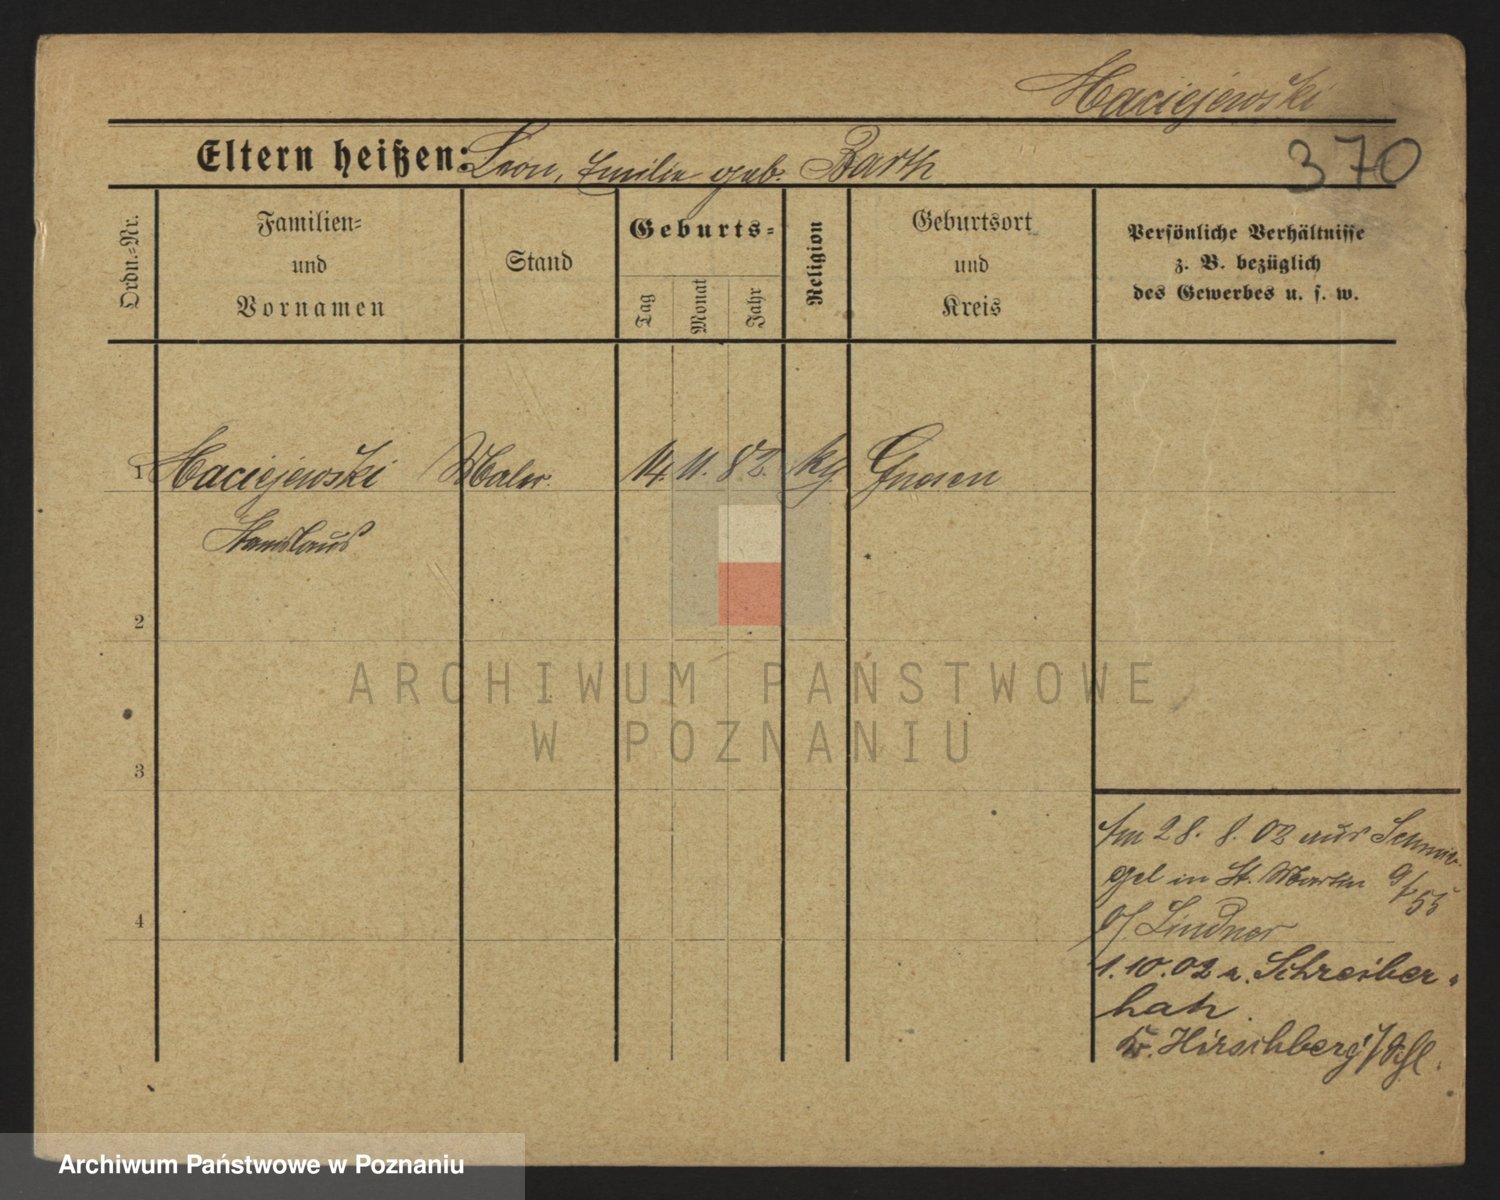 Maciejewski
370
Eltern heißen: Leon, Emilie geb. Barth
Ordn.-Nr.
Familien-
und
Vornamen
Stand
Geburts-
Tag
Monat
Jahr
Religion
Geburtsort
und
Kreis
Persönliche Verhältnisse
z. B. bezüglich
des Gewerbes u. s. w.
1 Maciejewski Maler. 14. 11. 82. kg Gnesen
Stanislaus
2
3
4
Am 28. 8. 02 aus Schmie-
gel in St. Martin 9/ 55
b/ Lindner
1.10.02 n. Schreiber-
hah.
Kr. Hirschberg i/Schl.
ARCHIWUM PAŃSTWOWE
W POZNANIU
Archiwum Państwowe w Poznaniu